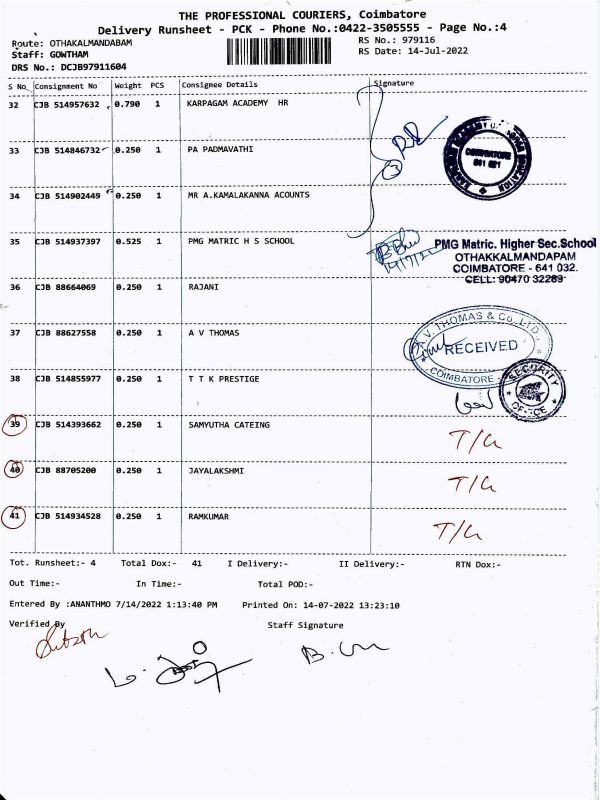 THE PROFESSIONAL COURIERS, Coimbatore
Delivery Runsheet - PCK - Phone No.:0422-3505555 - Page No.:4
Route: OTHAKALMANDABAM
RS No.: 979116
Staff: GOWTHAM
RS Date: 14-Jul-2022
DRS No.: DCJB97911604
S No Consignment No Weight PCS Consignee Details Signature
32 CJB 514957632 0.790 1 KARPAGAM ACADEMY HR
33 CJB 514846732 0.250 1 PA PADMAVATHI
COIMBATORE
641 021
34 CJB 514902449 0.250 1 MR A.KAMALAKANNA ACOUNTS
35 CJB 514937397 0.525 1 PMG MATRIC H S SCHOOL
PMG Matric. Higher Sec.School
OTHAKKALMANDAPAM
COIMBATORE - 641 032.
CELL: 90470 32289
36 CJB 88664069 0.250 1 RAJANI
37 CJB 88627558 0.250 1 A V THOMAS
A.V. THOMAS & Co., LTD.,
RECEIVED
COIMBATORE
38 CJB 514855977 0.250 1 T T K PRESTIGE
SECURITY
OFFICE
39 CJB 514393662 0.250 1 SAMYUTHA CATEING
T/C
40 CJB 88705200 0.250 1 JAYALAKSHMI
T/C
41 CJB 514934528 0.250 1 RAMKUMAR
T/C
Tot. Runsheet:- 4 Total Dox:- 41 I Delivery:- II Delivery:- RTN Dox:-
Out Time:- In Time:- Total POD:-
Entered By :ANANTHMO 7/14/2022 1:13:40 PM Printed On: 14-07-2022 13:23:10
Verified By Staff Signature